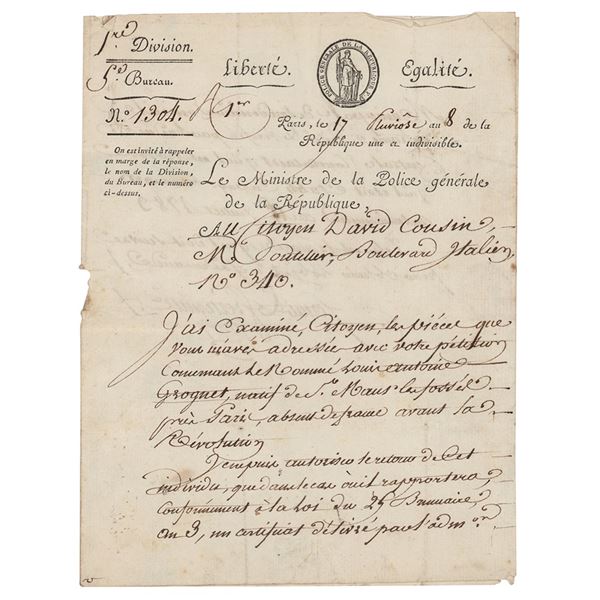 1re Division.
5e Bureau.
No. 1304.
On est invité à rappeler
en marge de la réponse,
le nom de la Division,
du Bureau, et le numéro
ci-dessus.
Liberté.
POLICE GÉNÉRALE DE LA RÉPUBLIQUE
Egalité.
Paris, le 17 Pluviôse an 8 de la
République une et indivisible.
Le Ministre de la Police générale
de la République,
Au Citoyen David Cousin,
Md. Boulevard Italien,
No. 340.
J'ai Examiné, Citoyen, les pièces que
vous m'avez adressées avec votre pétition
Concernant le Nommé Louis Antoine
Grognet, natif de St. Maur les fossés
près Paris, absent de france avant la
Révolution
Je n'puis autoriser le retour de Cet
individu, que dans le cas où il rapportera,
Conformément à la Loi du 25 Brumaire,
an 3, un certificat délivré par l'admon.